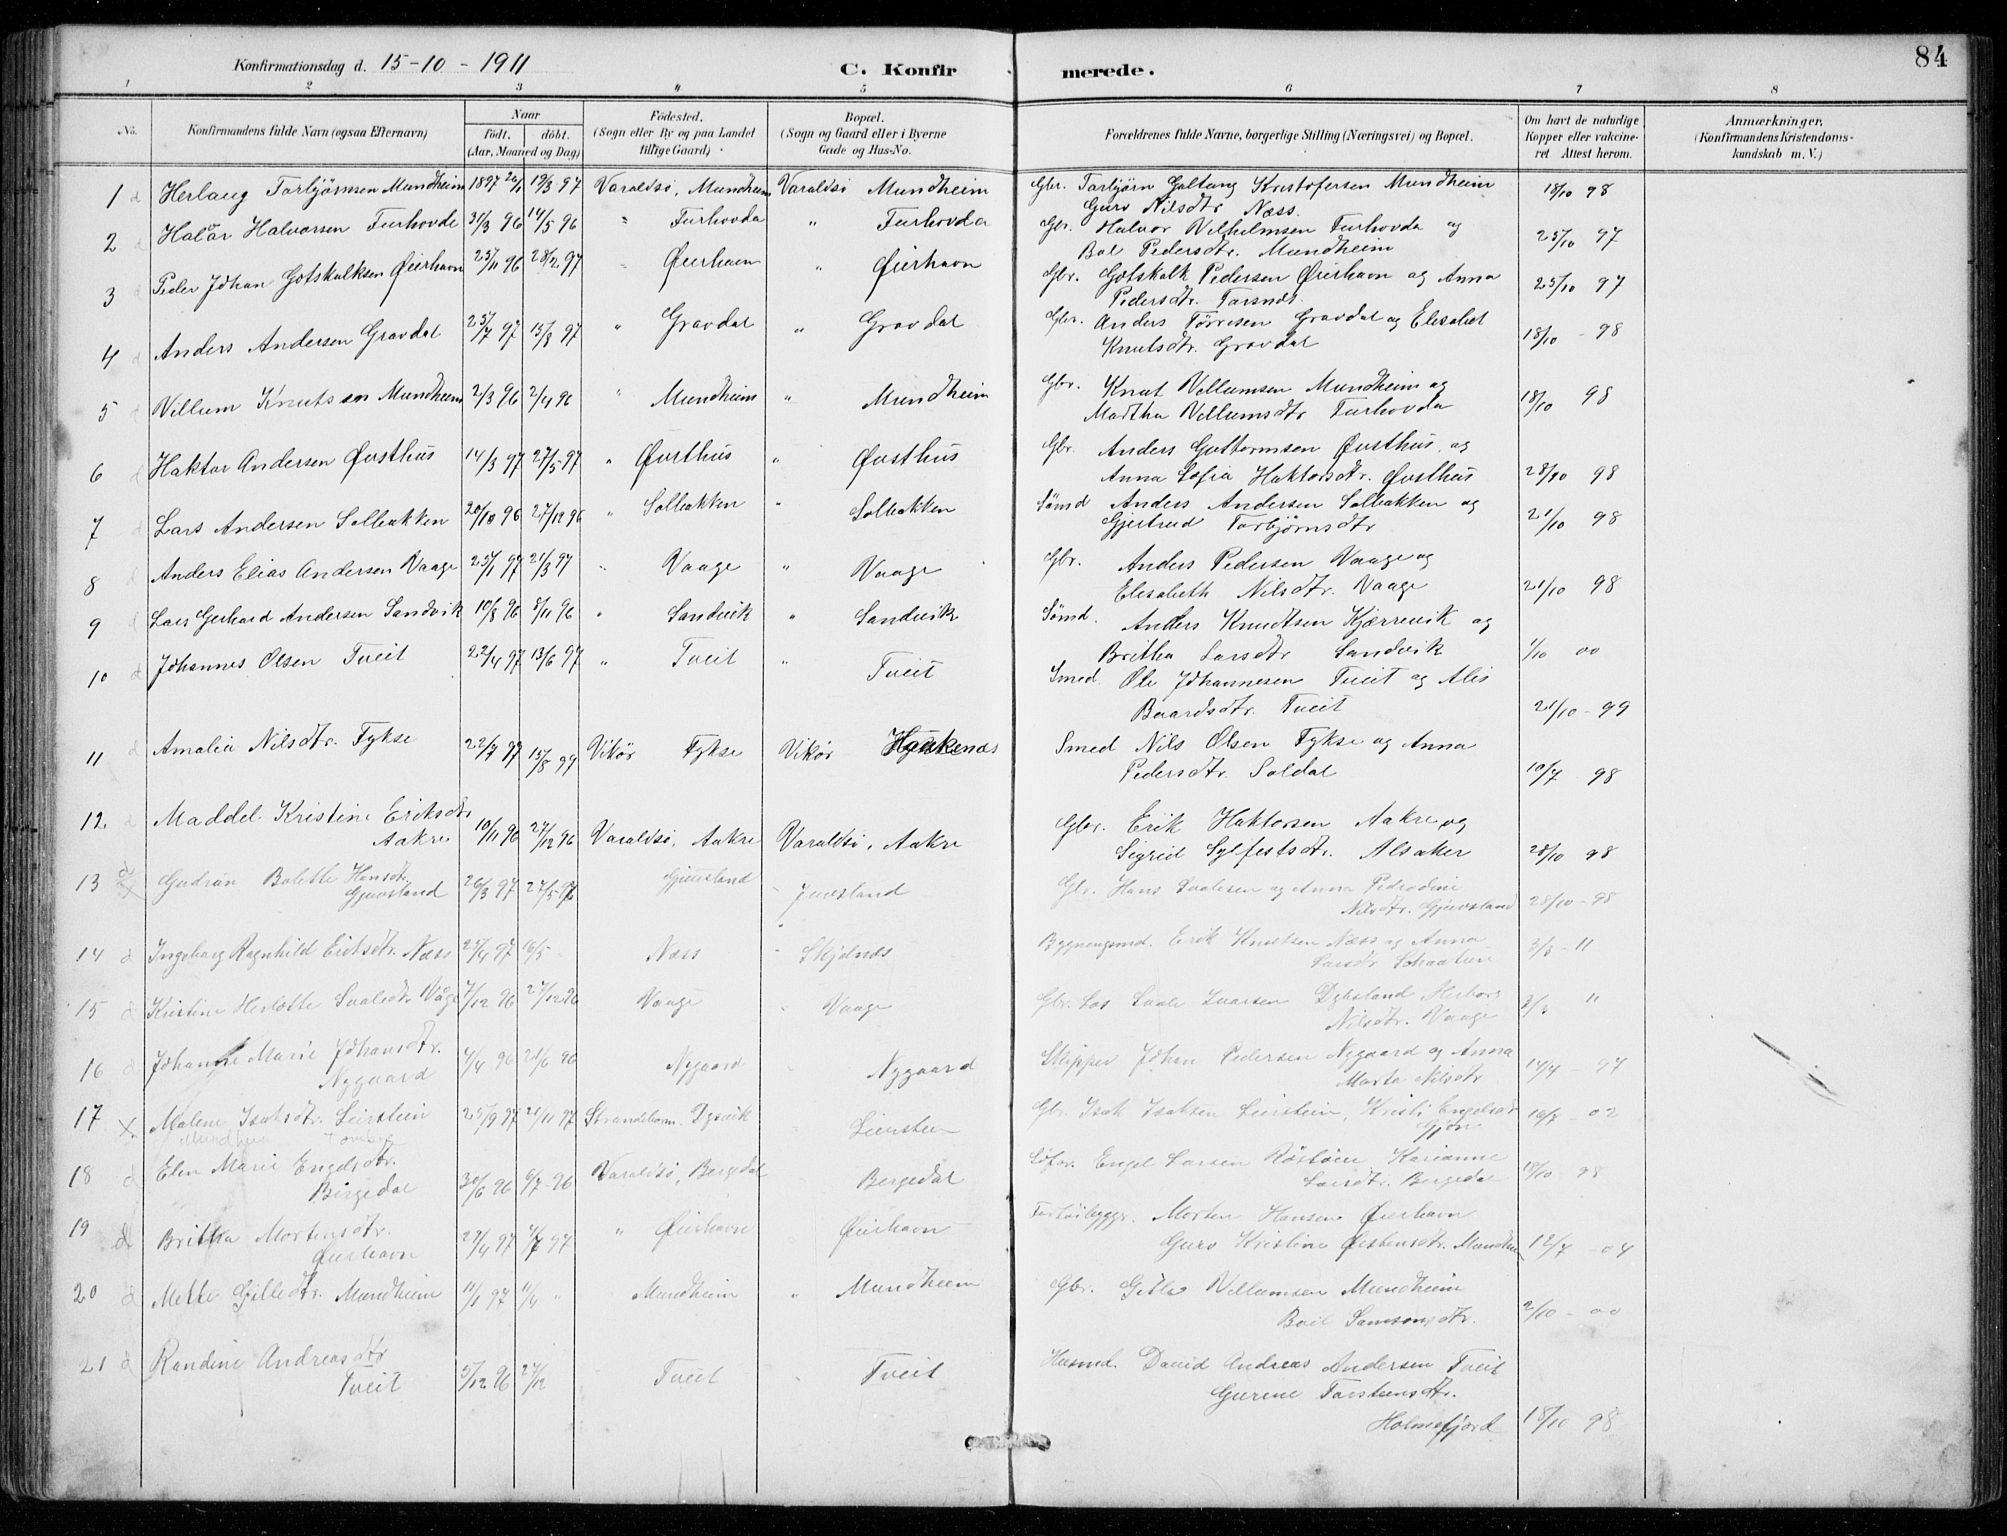 84
Konfirmationsdag d. 15-10-1911 C. Konfirmerede.
1 2 3 4 5 6 7 8
No. Konfirmandens fulde Navn (ogsaa Efternavn) Naar født. døbt. (Aar, Maaned og Dag) Fødested. (Sogn eller By og paa Landet tillige Gaard) Bopæl. (Sogn og Gaard eller i Byerne Gade og Hus-No. Forældrenes fulde Navne, borgerlige Stilling (Næringsvei) og Bopæl. Om havt de naturlige Kopper eller vakcineret Attest herom. Anmærkninger. (Konfirmandens Kristendomskundskab m. V.)
1 d Herlaug Torbjørnsen Mundheim 1897 19/3 97 Varaldsø, Mundheim Varaldsø Mundheim Gbr. Torbjørn Galtung Kristofersen Mundheim 18/10 98
Guro Nilsdtr Næss.
2 Halvor Halvorsen Furhovde 31/3 96 14/5 96 " Furhovda " Furhovda Gbr. Halvor Vilhelmsen Furhovda og 25/10 97
Pedersdtr. Mundheim
3 Peder Johan Gotskalksen Øierhavn 25/11 96 28/2 97 " Øierhavn " Øierhavn Gbr. Gotskalk Pedersen Øierhavn og Anna 25/10 97
Pedersdtr.
4 Anders Andersen Gravdal 25/7 97 15/8 97 " Gravdal " Gravdal Gbr. Anders Tørresen Gravdal og Elisabet 18/10 - 98
Knutsdtr. Gravdal
5 Villum Knutsen Mundheim 2/3 96 2/4 96 " Mundheim " Mundheim Gbr. Knut Villumsen Mundheim og 18/10 98
Martha Villumsdtr Furhovda
6 Haktor Andersen Øvsthus 14/3 97 27/5 97 " Øvsthus " Øvsthus Gbr. Anders Guttormsen Øvsthus og
Anna Sofia Haktorsdtr. Øvsthus 28/10 98
7 Lars Andersen Solbakken 20/10 96 27/12 96 " Solbakken " Solbakken Sømd Anders Andersen Solbakken og 21/10 98
Gjertrud Torbjørnsdtr
8 Anders Elias Andersen Vaage 25/1 97 21/3 97 " Vaage " Vaage Gbr. Anders Pedersen Vaage og
Elisabeth Nilsdtr. Vaage 21/10 98
9 Lars Gerhard Andersen Sandvik 10/8 96 8/11 96 " Sandvik " Sandvik Sømd. Anders Knudtsen Kjærrevik og
Britha Larsdtr Sandvik 1/10 00
10 d Johannes Olsen Tveit 22/4 97 13/6 97 " Tveit " Tveit Smed. Ole Johannesen Tveit og Alis
Baardsdtr. Tveit 21/10 - 99
11 d Amalia Nilsdtr. Fykse 22/7 97 15/8 99 Vikør Fykse Vikør Smed Nils Olsen Fykse og Anna
Pedersdtr. Soldal 10/7 98
12 d Maddel Kristine Eriksdtr Gbr. Erik Haktorsen Aakre og
Aakre 10/11 96 27/12 96 Varaldsø, Aakre Varaldsø, Aakre Sigrid Sylfestsdtr. Alsaker 28/10 98
13 Gudrun Bolette Hansdtr. Gjuvsland Gbr. Hans og Anna
Gjuvsland 26/3 97 27/5 97 Juvsland Nilsdtr. Gjuvsland 28/10 - 98
14 d Ingeborg Ragnhild Eriksdtr. Næss 25/4 97 16/5 Næss Skjelnes Bygningsmd. Erik Knutsen Næss og Anna 3/3 - 11
Larsdtr
15 d Kristine Våge 7/12 96 27/12 96 Vaage Vaage Gbr. Dyrsland Herborg 3/3 "
Nilsdtr. Vaage
16 d Johanne Marie Johansdtr. 4/4 96 21/6 96 Nygaard Nygaard Skipper Johan Pedersen Nygaard og Anna 14/4 - 97
Nygaard Marta Nilsdtr
17 x Malene Isaksdtr. Leirstein 25/9 97 21/11 97 Strandebarm Leirstein Gbr. Isak Isaksen Leirstein, Kristi Engelsdtr 19/7 - 02
18 d Elen Marie Engelsdtr. Engel Larsen Karianne
Bergedal 30/6 96 6/7-96 Varaldsø, Bergedal Bergedal Larsdtr. Bergedal 18/10 98
19 d Britha Mortensdtr. " Øierhavn Øierhavn Morten Hansen Øierhavn
Øierhavn 29/4 97 Guro Kristine Østensdtr. 12/7 - 04
20 d Mette Gitledtr. Mundheim 11/1 97 11/4 " Mundheim " Mundheim Gbr. Gitle Villumsen Mundheim
Samsonsdtr. 2/10 - 00
21 d Randine Andreasdtr Tveit Tveit Husmd. David Andreas Andersen Tveit
Tveit 5/12 96 27/12 Gurine Torsteinsdtr.
Holmefjord 18/10 98